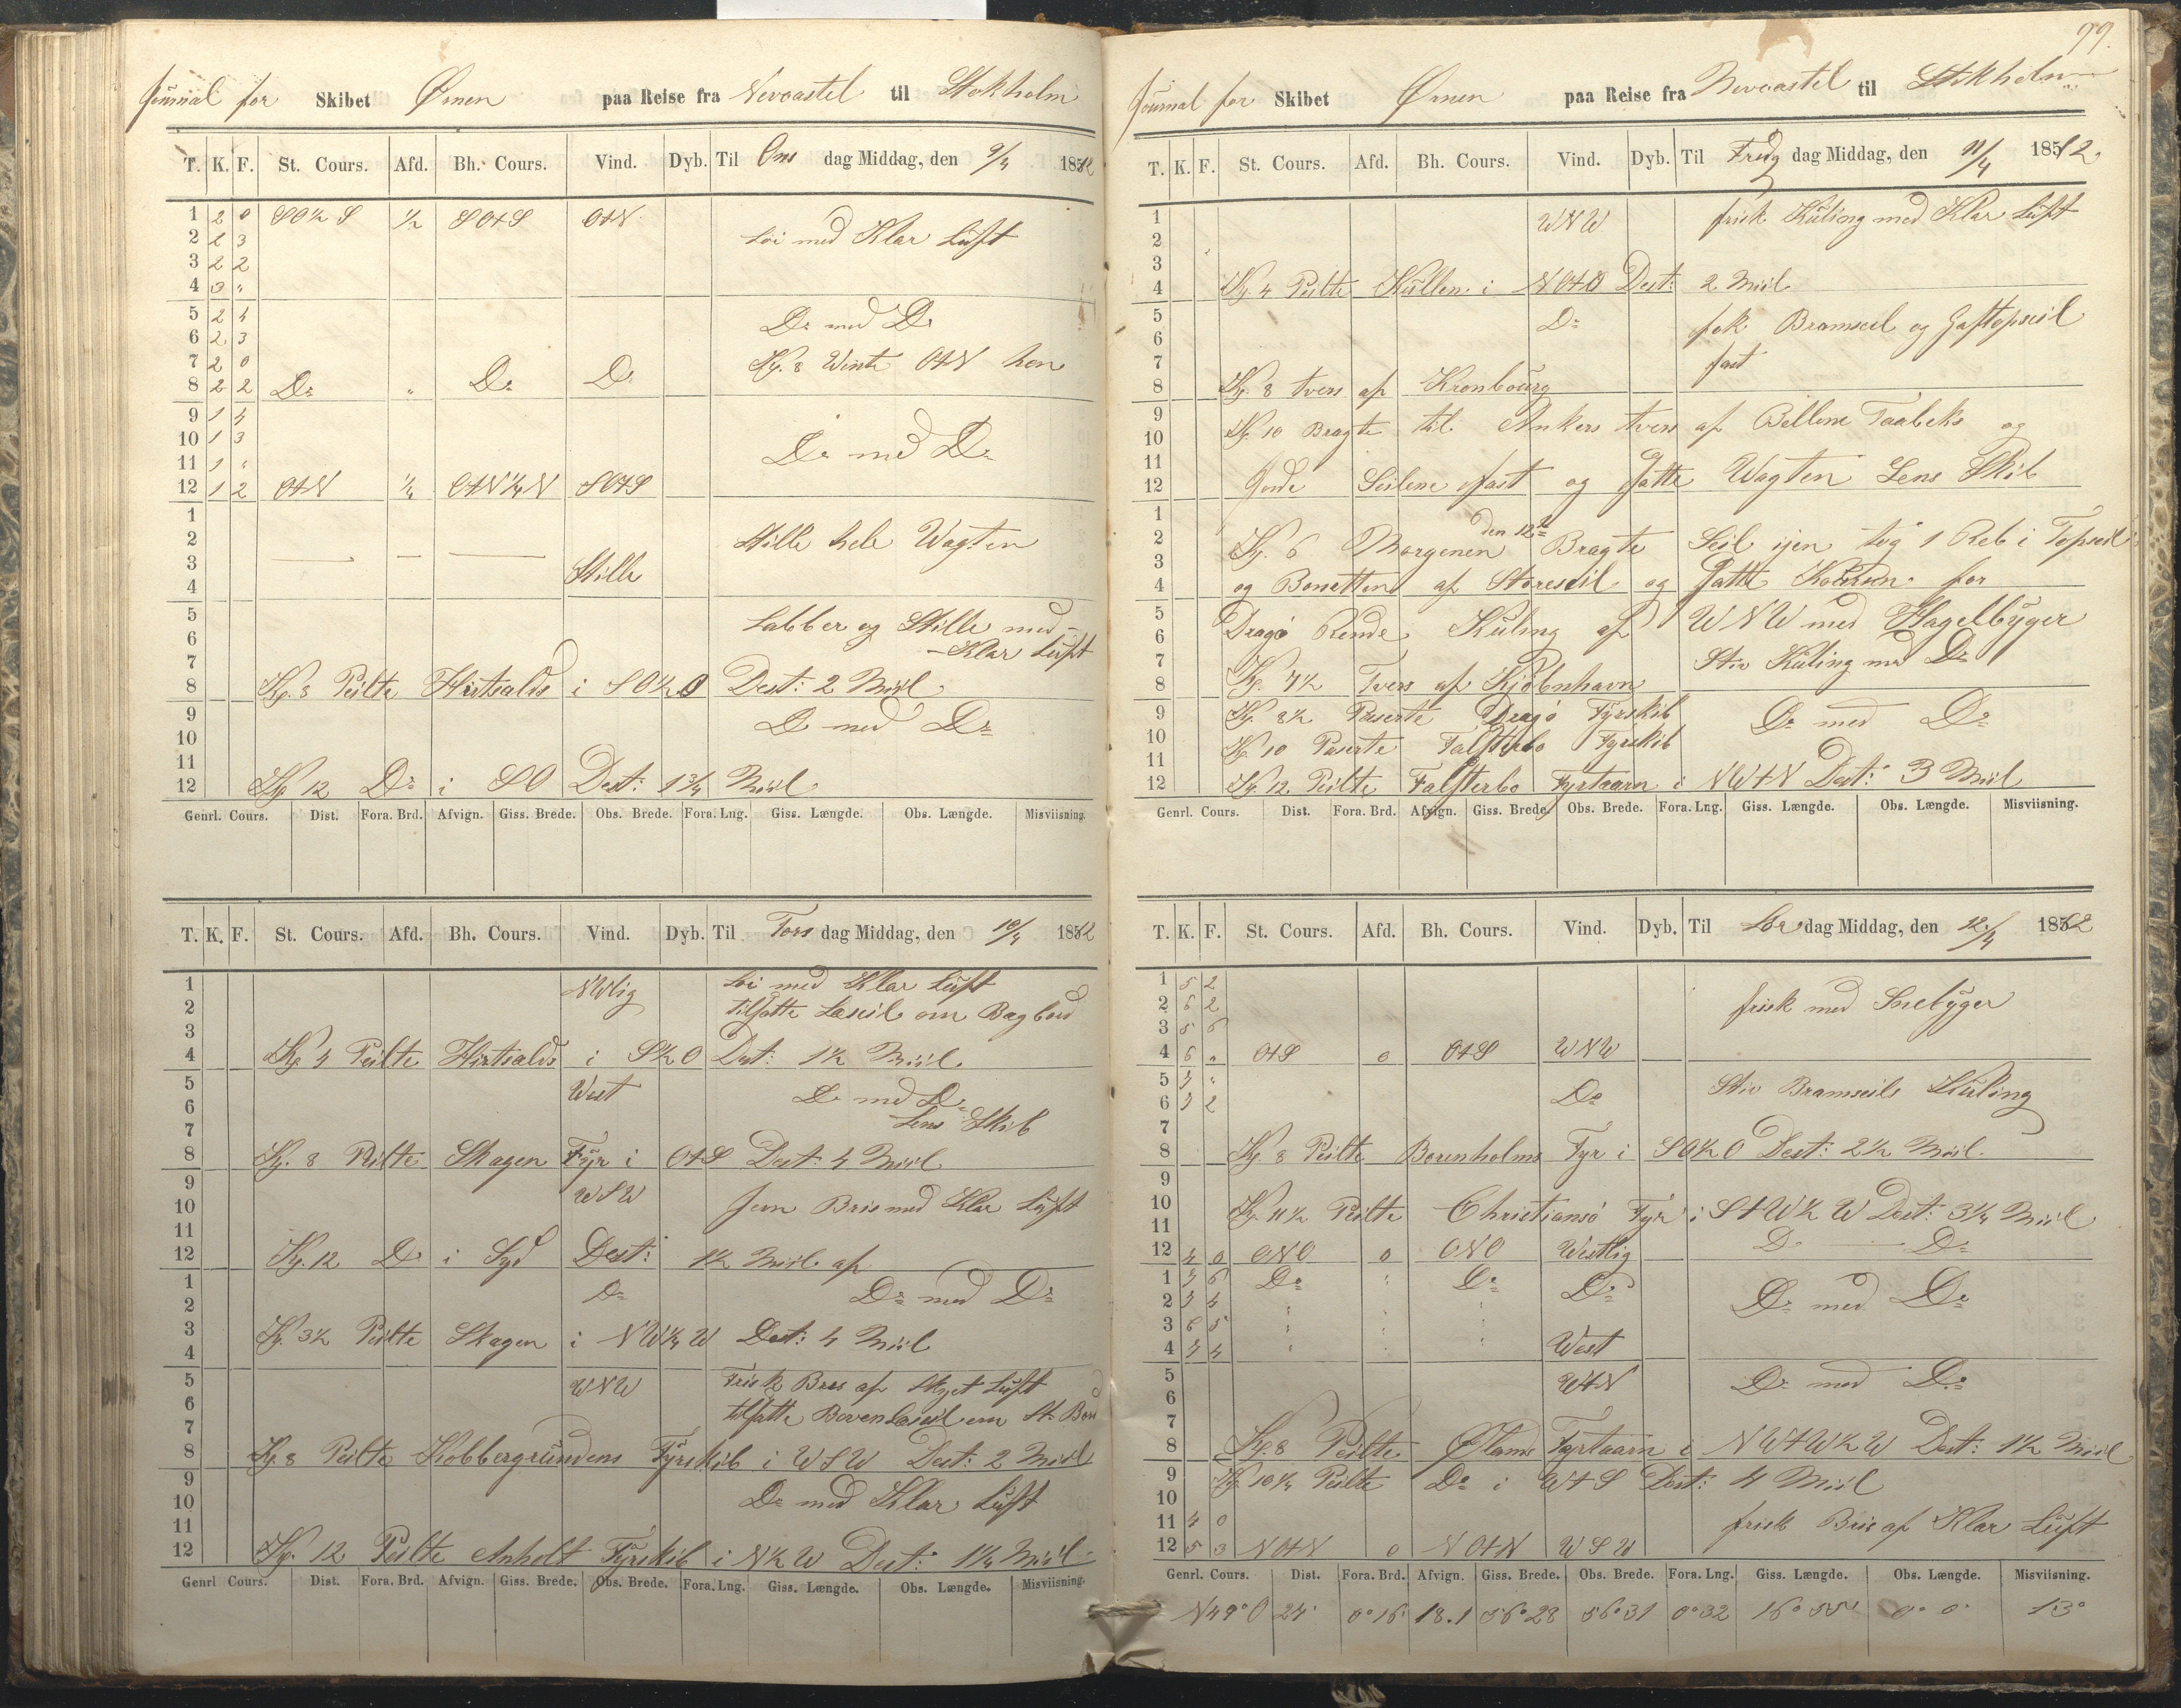 Journal for Skibet Ørnen paa Reise fra Newcastel til Stokholm
T. K. F. St. Cours. Afd. Bh. Cours. Vind. Dyb. Til Ons dag Middag, den 9/4 1882
1 2 0 SO½S ½ SOtS OtN
2 2 3 Löi med Klar Luft
3 2 2
4 3 "
5 2 4 Do med Do
6 2 3
7 2 0 Kl. 8 Wente OtN hen
8 2 2 Do " Do Do
9 1 4
10 1 3 Do med Do
11 1 "
12 1 2 OtN ¼ OtN¼N SOtS
1
2 Stille hele Wagten
3 Stille
4
5 Labber og Stille med
6 Klar Luft
7
8 Kl. 8 Peilte Hirtsalds i SO½O Dest: 2 Miil
9 Do med Do
10
11
12 Kl. 12 Do i SO Dest: 1¾ Miil
Genrl. Cours. Dist. Fora. Brd. Afvign. Giss. Brede. Obs. Brede. Fora. Lng. Giss. Længde. Obs. Længde. Misviisning.
T. K. F. St. Cours. Afd. Bh. Cours. Vind. Dyb. Til Tors dag Middag, den 10/4 1882
1 NWlig Löi med Klar Luft
2 tilsatte Læseil om Bagbord
3
4 Kl. 4 Peilte Hirtsalds i S½O Dest: 1½ Miil
5 West Do med Do
6 Lens Skib
7
8 Kl. 8 Peilte Skagen Fyr i OtS Dest: 4 Miil
9 WSW Jevn Bris med Klar Luft
10
11
12 Kl. 12 Do i Syd Dest: 1½ Miil af
1 Do Do med Do
2
3 Kl. 3½ Peilte Skagen i NW¼W Dest: 4 Miil
4
5 WNW Frisk Bris af Skyet Luft
6 tilsatte Bovenlæseil om St. Bord
7
8 Kl. 8 Peilte Kobbergrundens Fyrskib i WSW Dest: 2 Miil
9 Do med Klar Luft
10
11
12 Kl. 12 Peilte Anholt Fyrskib i N½W Dest: 1¼ Miil
Genrl Cours. Dist. Fora. Brd. Afvign. Giss. Brede. Obs. Brede. Fora. Lng. Giss. Længde. Obs. Længde. Misviisning.
99.
Journal for Skibet Ørnen paa Reise fra Newcastel til Stokholm
T. K. F. St. Cours. Afd. Bh. Cours. Vind. Dyb. Til Fredg dag Middag, den 11/4 1882
1 WNW frisk Kuling med Klar Luft
2
3
4 Kl. 4 Peilte Kullen i NOtO Dest: 2 Miil
5 Do fok Bramseil og Gaftopseil
6
7 fast
8 Kl. 8 tvers af Kronbourg
9 Kl. 10 Bragte til Ankers tvers af Bellene Taabeks og
10
11 Gjorde Seilene fast og satte Wagten Lens Skib
12
1 den 12te
2 Kl. 6 Morgenen Bragte Seil igen tog 1 Reb i Topseil
3
4 og Bonetten af Storeseil og satte Koursen for
5 Dragö Rende Kuling af WNW med Hagelbyger
6
7 Stiv Kuling med Do
8 Kl. 7½ Tvers af Kjöbenhavn
9 Kl. 8½ Paserte Dragö Fyrskib Do med Do
10 Kl. 10 Paserte Falsterbo Fyrskib
11
12 Kl. 12 Peilte Falsterbo Fyrtaarn i NWtN Dest: 3 Miil
Genrl. Cours. Dist. Fora. Brd. Afvign. Giss. Brede. Obs. Brede. Fora. Lng. Giss. Længde. Obs. Længde. Misviisning.
T. K. F. St. Cours. Afd. Bh. Cours. Vind. Dyb. Til Lör dag Middag, den 12/4 1882
1 5 2
2 6 2 frisk med Snebyger
3 5 6
4 6 " OtS 0 OtS WNW
5 7 " Stiv Bramseils Kuling
6 7 2 Do
7
8 Kl. 8 Peilte Borenholms Fyr i SO½O Dest: 2½ Miil
9
10 Kl. 11½ Peilte Christiansö Fyr i StW½W Dest: 3¼ Miil
11 Do Do
12 4 0 ONO 0 ONO Westlig
1 7 6 Do " Do Do
2 7 4 Do med Do
3 6 5
4 7 4 West
5 WtN Do med Do
6
7
8 Kl. 8 Peilte Ølands Fyrtaarn i NWtW½W Dest: 1½ Miil
9 Kl. 10¼ Peilte Do i WtS Dest: 4 Miil
10
11 4 0 frisk Bris af Klar Luft
12 5 3 NOtN 0 NOtN WSW
Genrl. Cours. Dist. Fora. Brd. Afvign. Giss. Brede. Obs. Brede. Fora. Lng. Giss. Længde. Obs. Længde. Misviisning.
N49°O 24' 0°16' 18.1 56°28 56°31 0°32 16°55' 0° 0' 13°